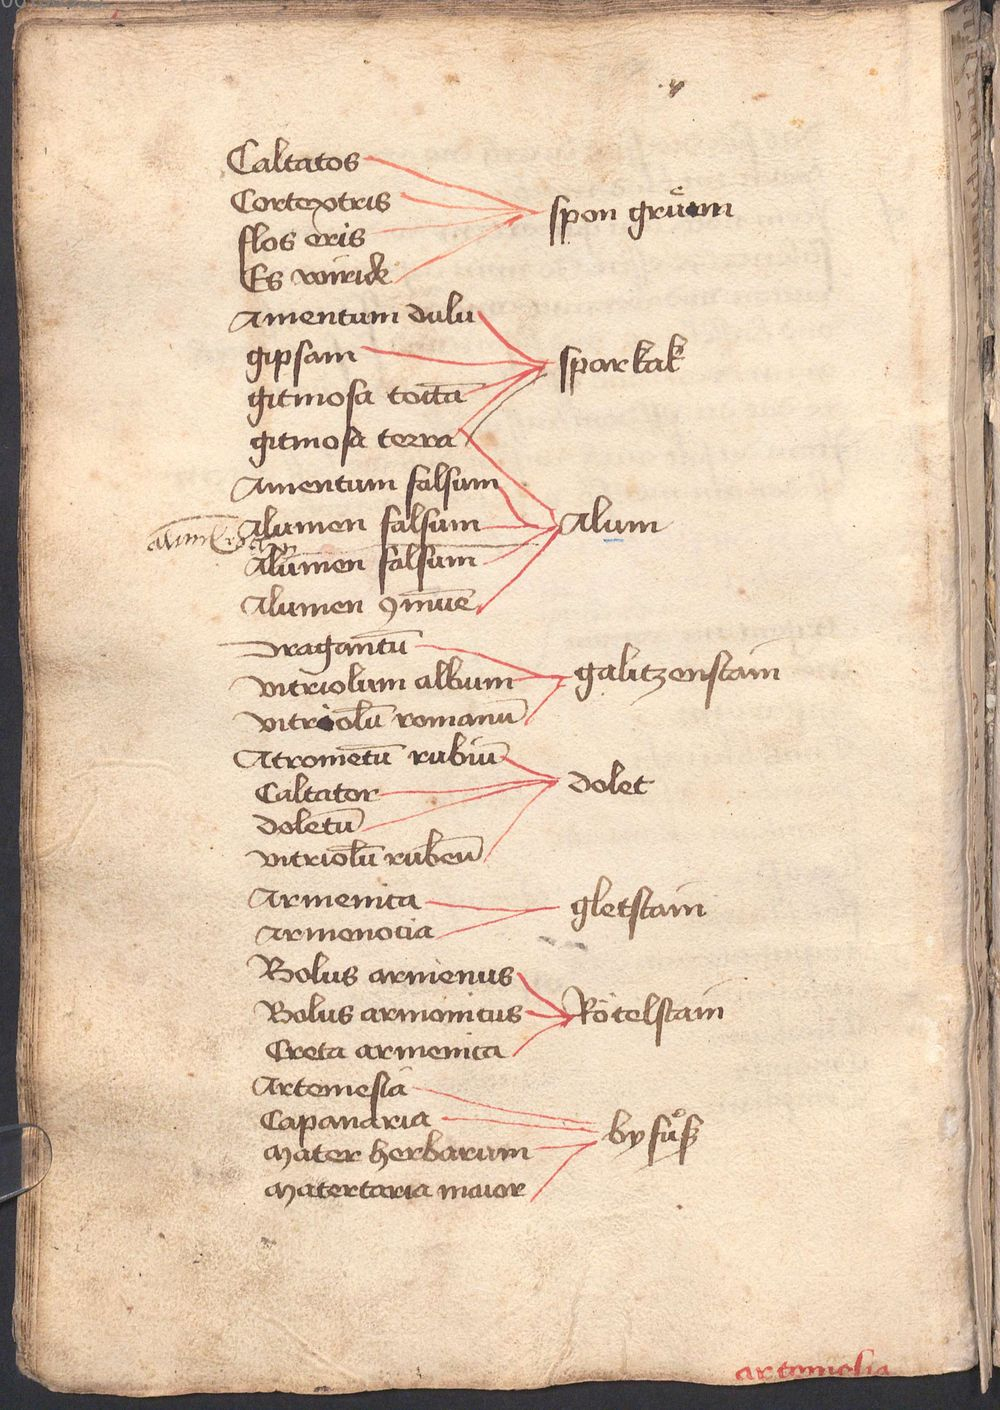 Caltatos
Cortexotris
flos eris
Es viride
spon gruͦem
Amentum dulu
gipsam
gitmosa toita̅
gitmosa terra
sparkalk
Amentum falsum
Alumen falsum
Alumen falsum
Alumen ꝯmu̅e
Alum
Dragantu̅
vitriolum album
vitriolu̅ romanu̅
galitzenstain
Atrometu̅ rubiu̅
Caltator
doletu̅
vitriolu̅ rubeu̅
dolet
Armenica
Armenocia
gletstain
Bolus armenus
Bolus armonicus
Creta armenica
Rötelstain
Artemesia
Capanaria
Mater herbarum
Matertaria maior
by fuͦß
artemesia